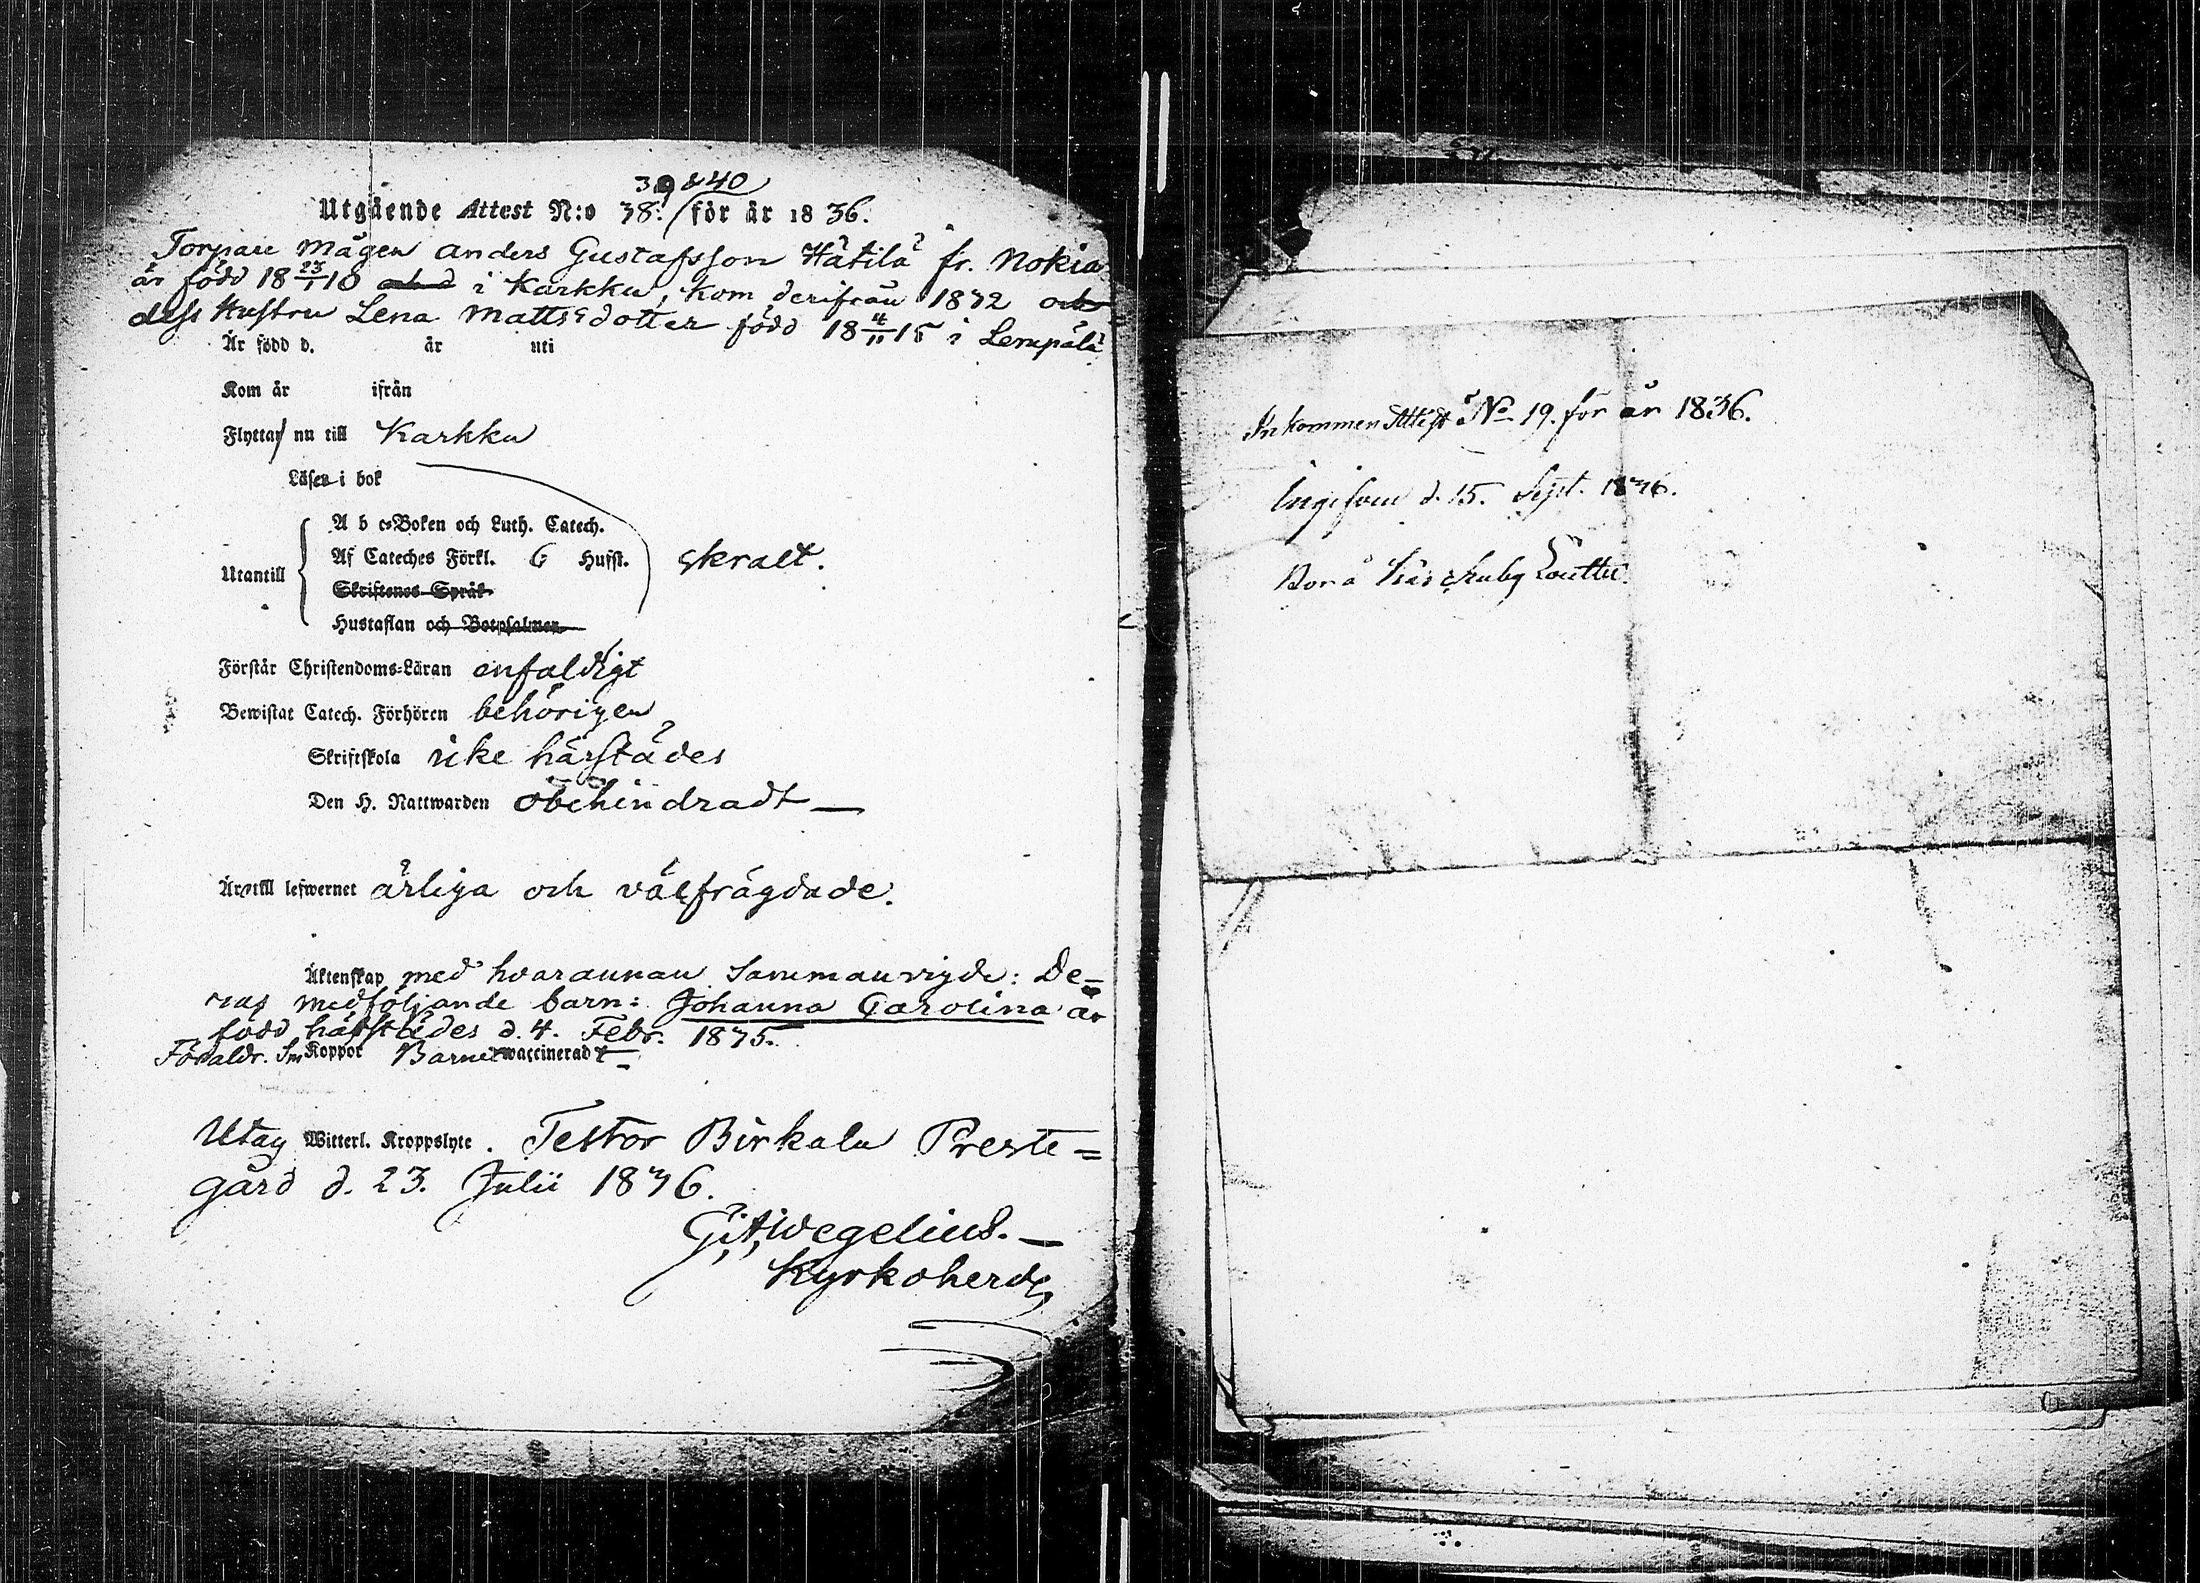 39 & 40
Utgående Attest N:o 38. för år 1836.
Torpare Mågen Anders Gustafsson Hätilä fr. Nokia
är född 18 23/1 10 och d i Karkku, kom derifrån 1832 och
dess Hustru Lena Mattsdotter född 18 4/11 15 i Lempälä
Är född d. år uti
Kom år ifrån
Flyttar nu till Karkku
Läser i bok
A b c-Boken och Luth. Catech.
Af Cateches Förkl. 6 Hufst. skralt.
Utantill
Skriftenes Språk
Hustaflan och Botpsalmen
Förstår Christendoms-Läran enfaldigt
Bewistat Catech. Förhören behörigen
Skriftskola icke härstädes
Den H. Nattwarden obehindradt —
Äro till lefwernet ärliga och välfrägdade.
Äktenskap med hvarannan sammanvigde: De=
ras medföljande barn: Johanna Carolina är
född härstädes d. 4. Febr. 1835.
Föräldr. Koppor Barnet waccineradt
Utan Witterl. Kroppslyte. Testor Birkala Preste=
gård d. 23. Julii 1836.
G. A. Wegelius. —
Kyrkoherde
Inkommen Attest No 19. för år 1836.
Ingifven d. 15. Sept. 1836.